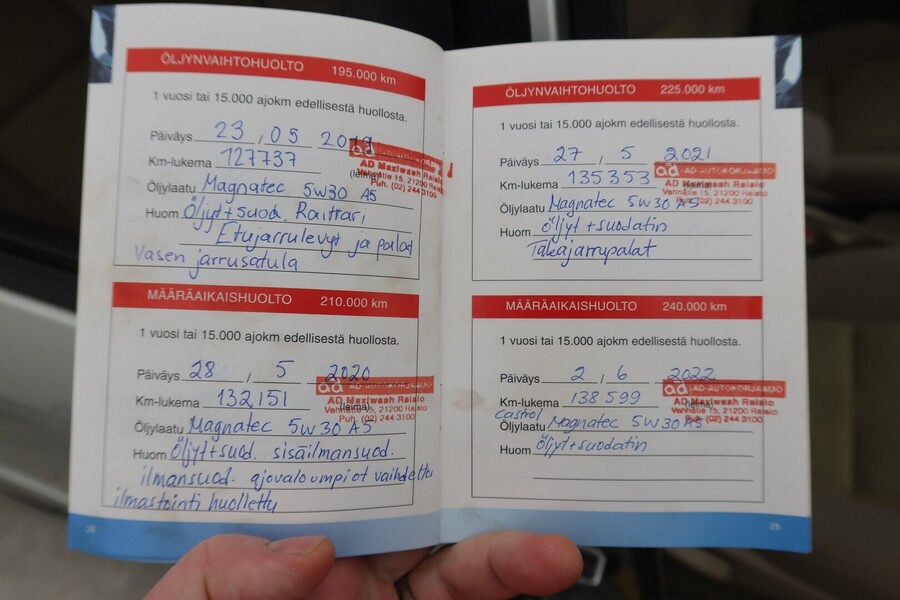 ÖLJYNVAIHTOHUOLTO 195.000 km
1 vuosi tai 15.000 ajokm edellisestä huollosta.
Päiväys 23 / 05 2019
Km-lukema 127737
(leima)
AD Maxiwash Raisio
Vahnatie 15, 21200 Raisio
Puh. (02) 244 3100
Öljylaatu Magnatec 5W30 A5
Huom Öljyt+suod. Raitari
Etujarrulevyt ja palat
Vasen jarrusatula
MÄÄRÄAIKAISHUOLTO 210.000 km
1 vuosi tai 15.000 ajokm edellisestä huollosta.
Päiväys 28 / 5 2020
ad AD-AUTOKORJAAMO
Km-lukema 132,151
(leima)
AD Maxiwash Raisio
Vahnatie 15, 21200 Raisio
Puh. (02) 244 3100
Öljylaatu Magnatec 5W30 A5
Huom Öljyt+suod. sisäilmansuod.
ilmansuod. ajovalo umpiot vaihdettu
ilmastointi huollettu
28
ÖLJYNVAIHTOHUOLTO 225.000 km
1 vuosi tai 15.000 ajokm edellisestä huollosta.
Päiväys 27 / 5 2021
ad AD-AUTOKORJAAMO
Km-lukema 135353
AD Maxiwash Raisio
Vahnatie 15, 21200 Raisio
Puh. (02) 244 3100
Öljylaatu Magnatec 5W30 A5
Huom Öljyt+suodatin
Takajarrupalat
MÄÄRÄAIKAISHUOLTO 240.000 km
1 vuosi tai 15.000 ajokm edellisestä huollosta.
Päiväys 2 / 6 2022
ad AD-AUTOKORJAAMO
Km-lukema 138599
(leima)
AD Maxiwash Raisio
Vahnatie 15, 21200 Raisio
Puh. (02) 244 3100
Castrol
Öljylaatu Magnatec 5W30 A5
Huom Öljyt+suodatin
29